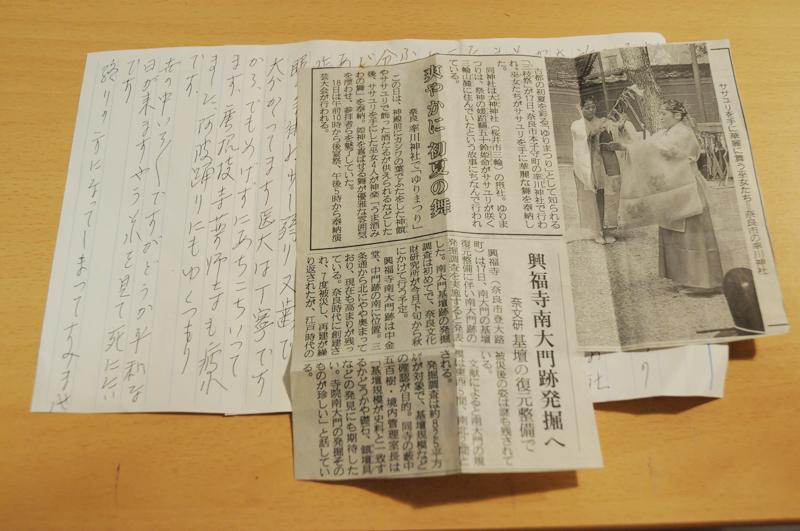 ササユリを手に華麗に舞う巫女たち＝奈良市の率川神社
爽やかに初夏の舞
奈良 率川神社で「ゆりまつり」
古都の初夏を彩る「ゆりまつり」として知られる
「三枝祭」が17日、奈良市本子守町の率川神社で行わ
れ、巫女たちがササユリを手に華麗な舞を奉納し
た。
同神社は大神神社（桜井市三輪）の摂社。ゆりま
つりは、祭神の媛蹈韛五十鈴姫命がササユリが咲く
三輪山麓に住んでいたという故事にちなんで行われ
ている。
この日は、神殿前にカシワの葉でふたをした神饌
やササユリで飾った酒だるが供えられるなどした
後、ササユリを手にした巫女4人が神楽「うま酒み
わの舞」を奉納。姫神を喜ばせる舞が優雅な雰囲気
を漂わせ、参拝者らを魅了していた。
18日は午前10時から後宴祭、午後5時から奉納演
芸大会が行われる。
興福寺南大門跡発掘へ
奈文研 基壇の復元整備で
興福寺（奈良市登大路
町）は17日、南大門の基壇
復元整備に伴い南大門跡の
発掘調査を実施すると発表
した。南大門基壇跡の発掘
調査は初めてで、奈良文化
財研究所が今月下旬から秋
にかけて行う予定。
興福寺南大門跡は中金
堂、中門跡の南に位置。三
条通から北にやや奥まって
おり、現在も高まりが残っ
ている。奈良時代に創建さ
れ、7度被災し、再建が繰
り返されたが、江戸時代の
被災後の姿は謎も残されて
いる。
文献によると南大門の規
模は東西
される。
発掘調査は約825平方
㍍が対象で、基壇規模など
の確認が目的。同寺の薮中
五百樹・境内管理室長は
「基壇規模が史料と一致す
るかどうかや礎石、鎮壇具
などの発見にも期待した
い。寺院南大門の発掘その
ものが珍しい」と話してい
る。
大分かってます 医大は丁寧です
から、でもめげずにあちこちいって
ます、唐招提寺 薬師寺も療
です。
阿波踊りにもゆくつもり
世の中いろ ですがどうか平和な
日が来ますやう 見て死にたい
です
踊りの方になって しまってすみませ
社